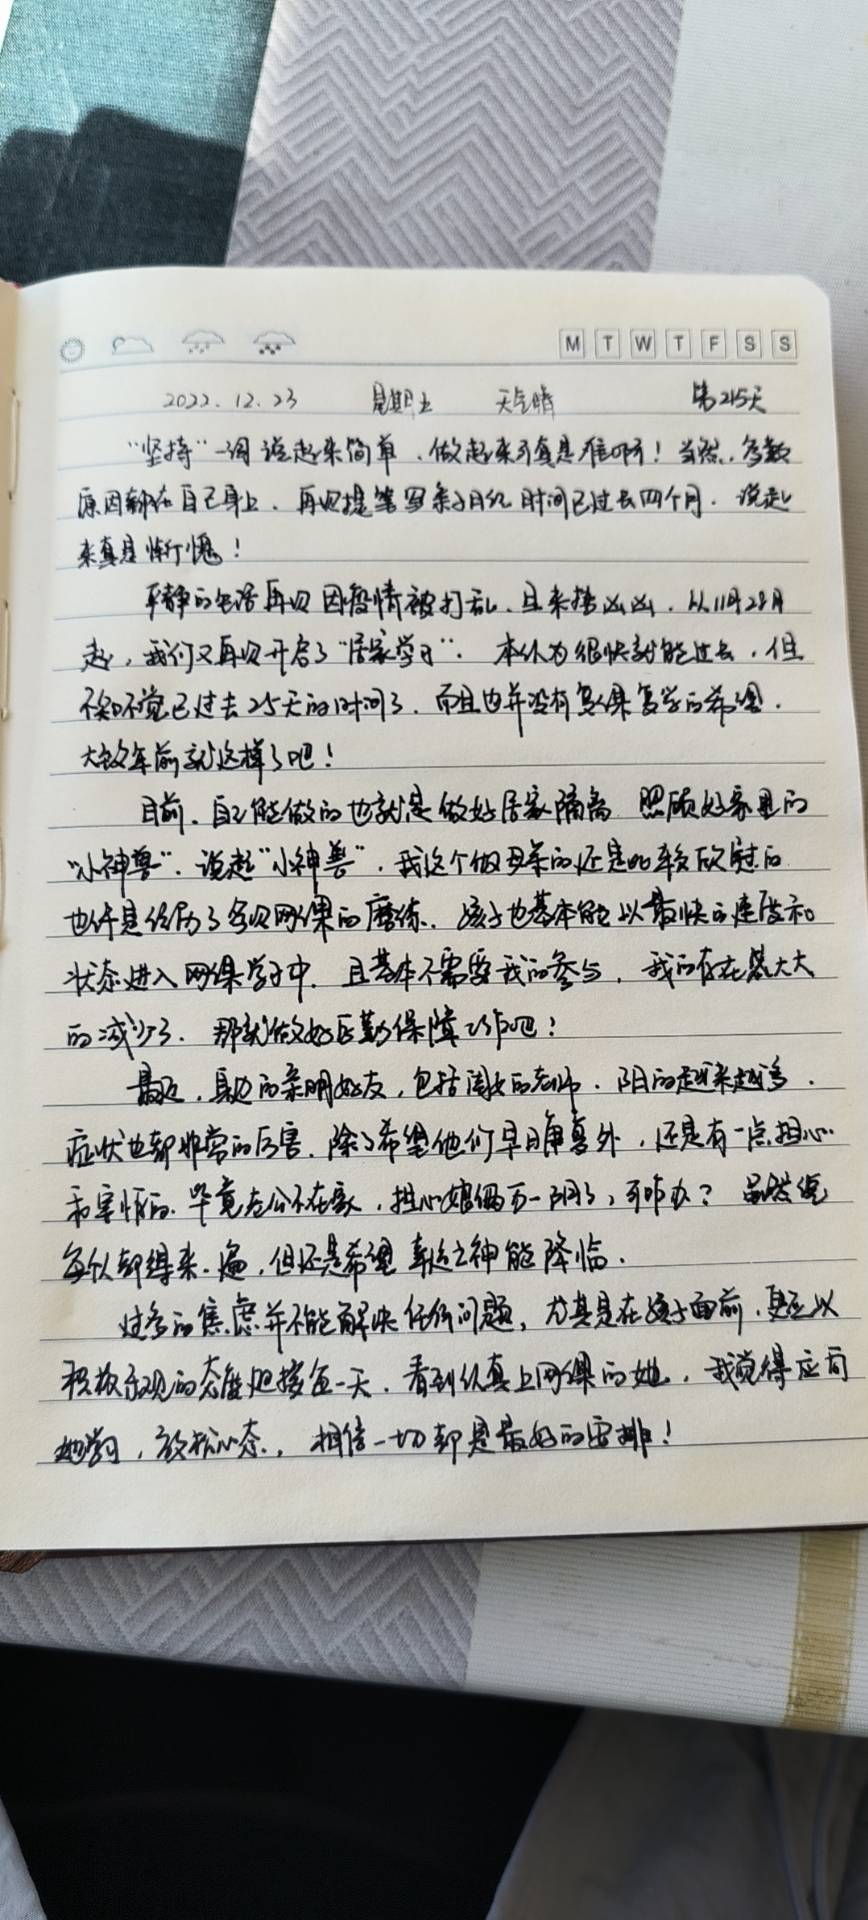 M T W T F S S
2022.12.23 星期五 天气晴 第215天
“坚持”一词说起来简单,做起来可真是难啊!当然,多数
原因都在自己身上,再次提笔写亲子日记时间已过去四个月,说起
来真是惭愧!
平静的生活再次因疫情被打乱,且来势凶凶,从11月28月
起,我们又再次开启了“居家学习”.本以为很快就能过去,但
不知不觉已过去25天的时间了,而且也并没有复课复学的希望,
大致年前就这样了吧!
目前,自己能做的也就是做好居家隔离 照顾好家里的
“小神兽”,说起“小神兽”,我这个做母亲的还是比较欣慰的
也许是经历了多次网课的磨练,孩子也基本能以最快的速度和
状态进入网课学习中,且基本不需要我的参与,我的存在感大大
的减少了,那就做好后勤保障工作吧!
最近,身边的亲朋好友,包括闺女的老师,阳的越来越多,
症状也都非常的厉害,除了希望他们早日康复外,还是有一点担心
和害怕的,毕竟老公不在家,担心娘俩万一阳了,可咋办?虽然说
每个人都得来一遍,但还是希望幸运之神能降临.
过多的焦虑并不能解决任何问题,尤其是在孩子面前,更应以
积极乐观的态度迎接每一天,看到认真上网课的她,我觉得应向
她学习,放松心态,相信一切都是最好的安排!